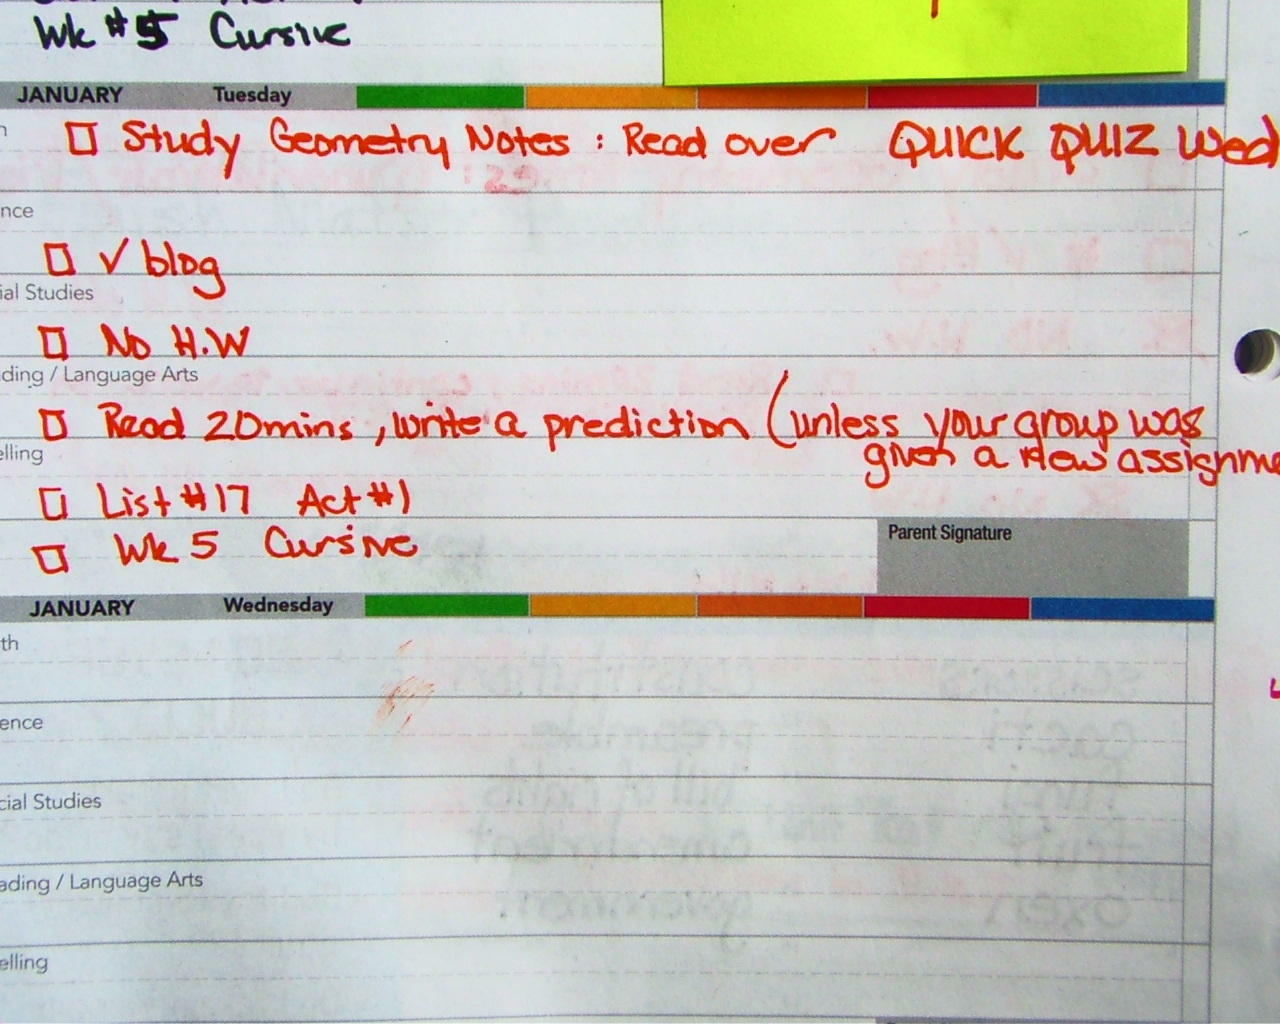 Wk #5 Cursive
JANUARY Tuesday
Study Geometry Notes : Read over QUICK QUIZ Wed
nce
✓ blog
ial Studies
No H.W
ding / Language Arts
Read 20mins , write a prediction (unless your group was
given a new assignme
elling
List #17 Act #1
Wk 5 Cursive
Parent Signature
JANUARY Wednesday
th
ence
cial Studies
ading / Language Arts
elling